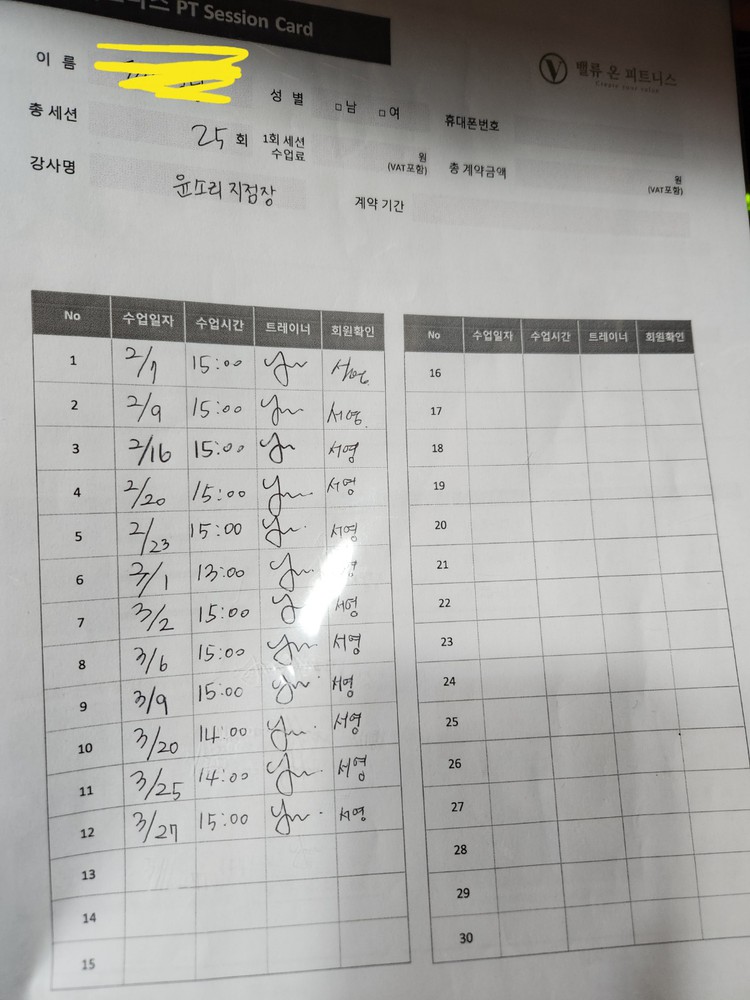 PT Session Card
이 름
밸류 온 피트니스
Create your value
성 별 □남 □여
휴대폰번호
총 세션 25 회
1회 세션 수업료
원 (VAT포함)
총 계약금액
원 (VAT포함)
강사명 윤소리 지점장
계약 기간
No 수업일자 수업시간 트레이너 회원확인
1 2/7 15:00 서영
2 2/9 15:00 서영
3 2/16 15:00 서영
4 2/20 15:00 서영
5 2/23 15:00 서영
6 3/1 13:00
7 3/2 15:00 서영
8 3/6 15:00 서영
9 3/9 15:00 서영
10 3/20 14:00 서영
11 3/25 14:00 서영
12 3/27 15:00 서영
13
14
15
No 수업일자 수업시간 트레이너 회원확인
16
17
18
19
20
21
22
23
24
25
26
27
28
29
30